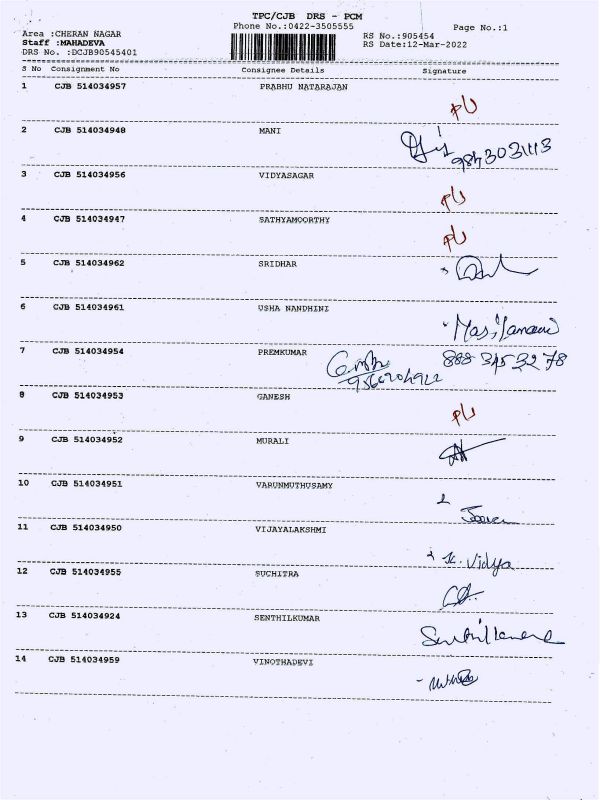 TPC/CJB DRS - PCM
Phone No.:0422-3505555
Page No.:1
Area :CHERAN NAGAR
RS No.:905454
Staff :MAHADEVA
RS Date:12-Mar-2022
DRS No. :DCJB90545401
S No Consignment No Consignee Details Signature
1 CJB 514034957 PRABHU NATARAJAN
PU
2 CJB 514034948 MANI
3 CJB 514034956 VIDYASAGAR
PU
4 CJB 514034947 SATHYAMOORTHY
PU
5 CJB 514034962 SRIDHAR
6 CJB 514034961 USHA NANDHINI
7 CJB 514034954 PREMKUMAR
8 CJB 514034953 GANESH
PU
9 CJB 514034952 MURALI
10 CJB 514034951 VARUNMUTHUSAMY
11 CJB 514034950 VIJAYALAKSHMI
K. Vidya
12 CJB 514034955 SUCHITRA
13 CJB 514034924 SENTHILKUMAR
14 CJB 514034959 VINOTHADEVI